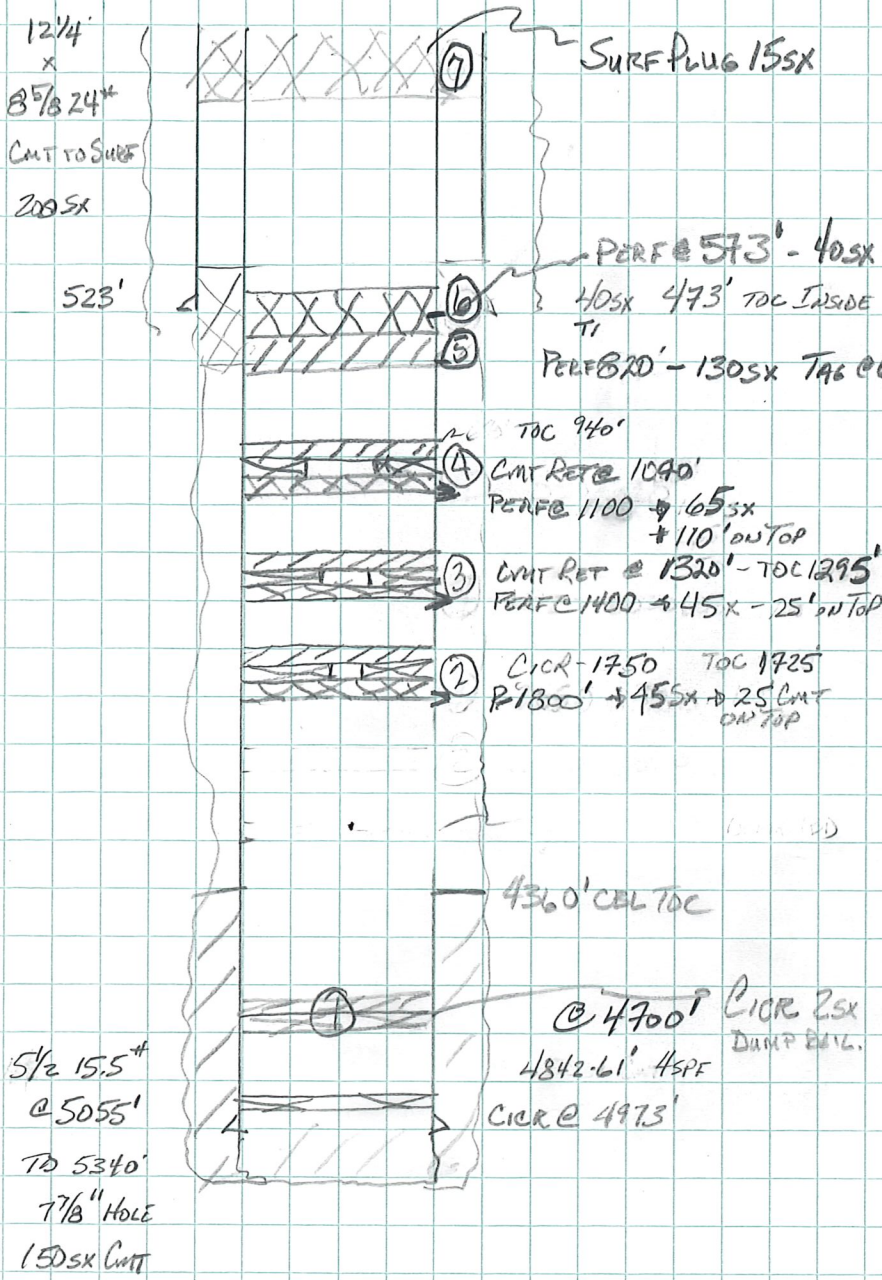 12 1/4"
x
8 5/8 24#
CMT TO SURF
200 SX
523'
⑦
SURF PLUG 15 SX
PERF @ 573' - 40 SX
⑥
40 SX 473' TOC INSIDE
⑤
PERF 820' - 130 SX TAG @
TOC 940'
④ CMT RET @ 1090'
PERF @ 1100 → 65 SX
+ 110' ON TOP
③ CMT RET @ 1320' - TOC 1295'
PERF @ 1400 → 45X - 25' ON TOP
② CICR - 1750 TOC 1725'
P-1800' → 45 SX → 25' CMT
ON TOP
4360' CBL TOC
①
@ 4700' CICR 2SX
DUMP BAIL.
4842-61' 4SPF
CICR @ 4973'
5 1/2 15.5#
@ 5055'
TD 5340'
7 7/8" HOLE
150 SX CMT